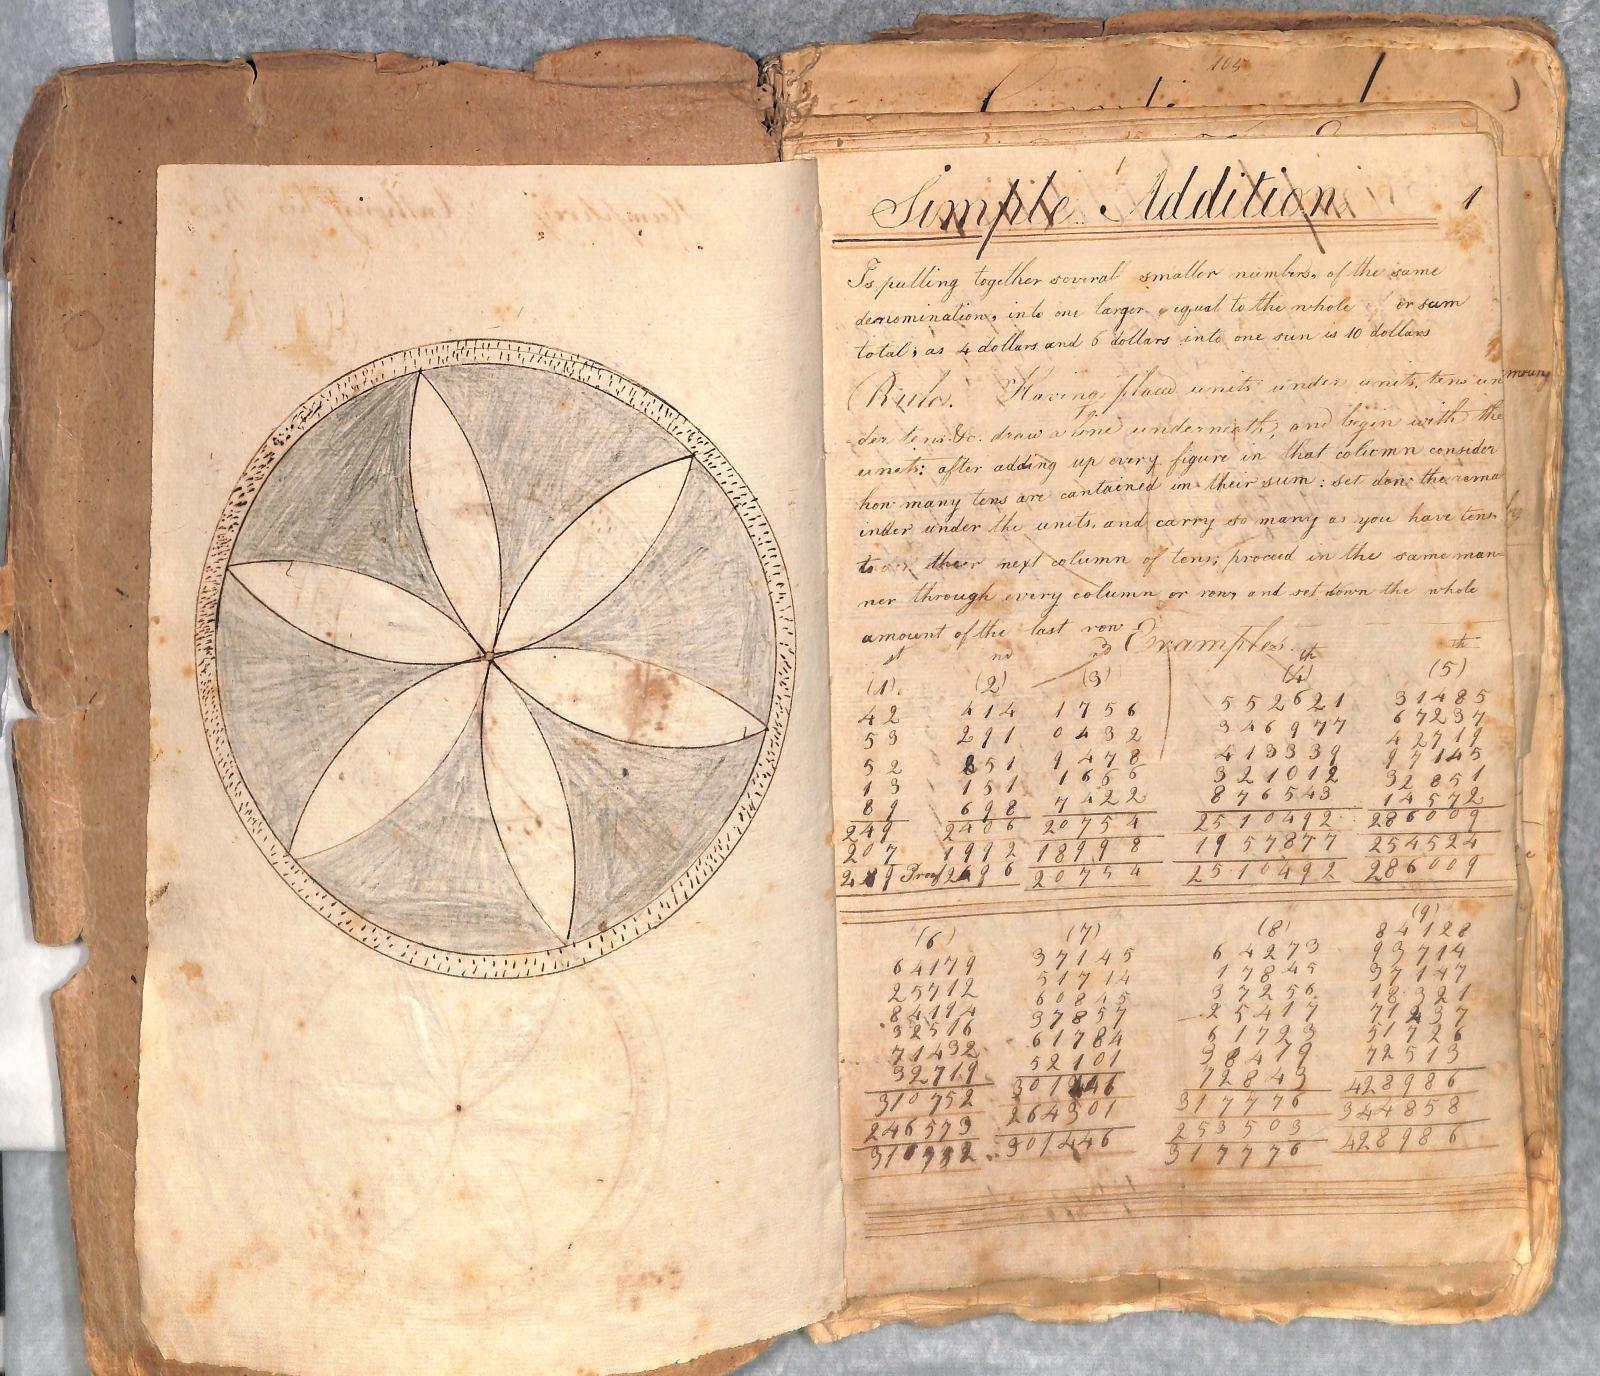 105
Simple Addition
1
Is putting together several smaller numbers, of the same
denomination, into one larger equal to the whole or sum
total; as 4 dollars and 6 dollars into one sun is 10 dollars
Rule. Having place units under units, tens un
der tens &c. draw a line underneath, and begin with the
units: after adding up every figure in that column consider
how many tens are contained in their sum: set don the rema
inder under the units, and carry so many as you have tens
to ther next column of tens; proceed in the same man
ner through every column or row, and set down the whole
amount of the last row
Examples.
st nd d th th
(1). (2) (3) (4) (5)
42 414 1756 552621 31485
53 291 0432 346977 67237
52 851 9478 413339 42719
13 151 1666 321012 97145
89 698 7422 876543 32851
14572
249 2406 20754 2510492 286009
207 1992 18998 1957877 254524
249 Proof 20754 2510492 286009
(6) (7) (8) (9)
64179 37145 64273 84128
25712 51714 17845 93714
84194 60845 37256 37147
32516 37857 25417 18321
71432 61784 61723 71237
32719 52101 38419 51726
72843 72513
310752 301446 317776 428986
246573 264301 253503 344858
301446 317776 428986